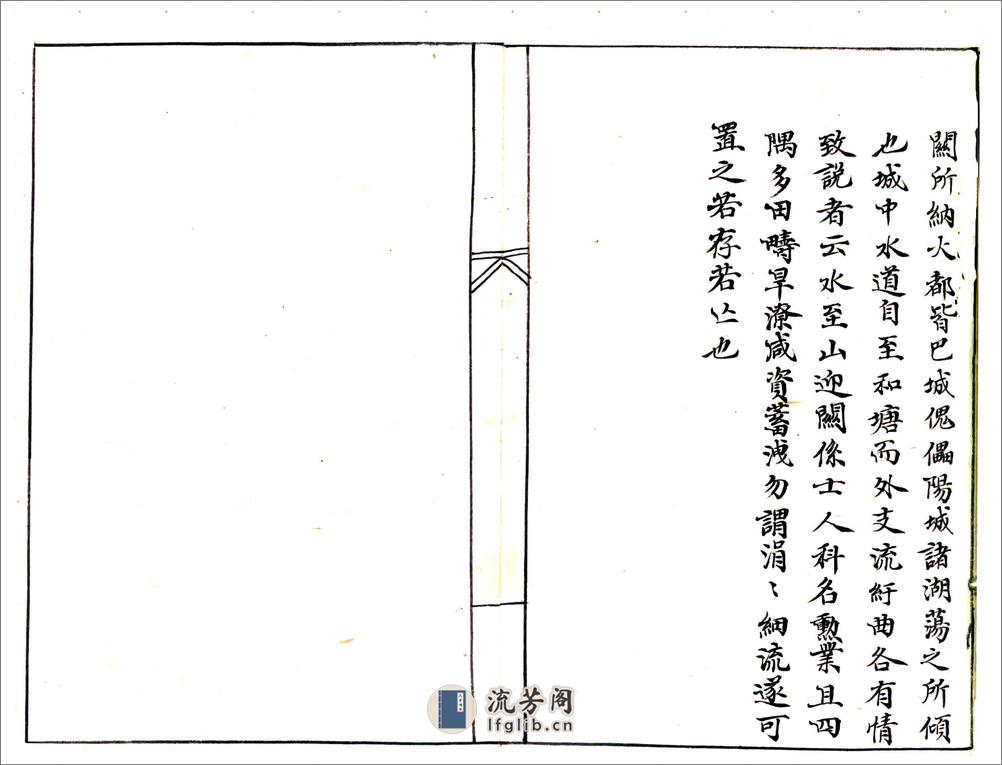 關所納大都皆巴城傀儡陽城諸湖蕩之所傾
也城中水道自至和塘而外支流紆曲各有情
致說者云水至山迎關係士人科名勳業且四
隅多田疇旱潦咸資蓄洩勿謂涓〻細流遂可
置之若存若亾也
流芳阁
lfglib.cn